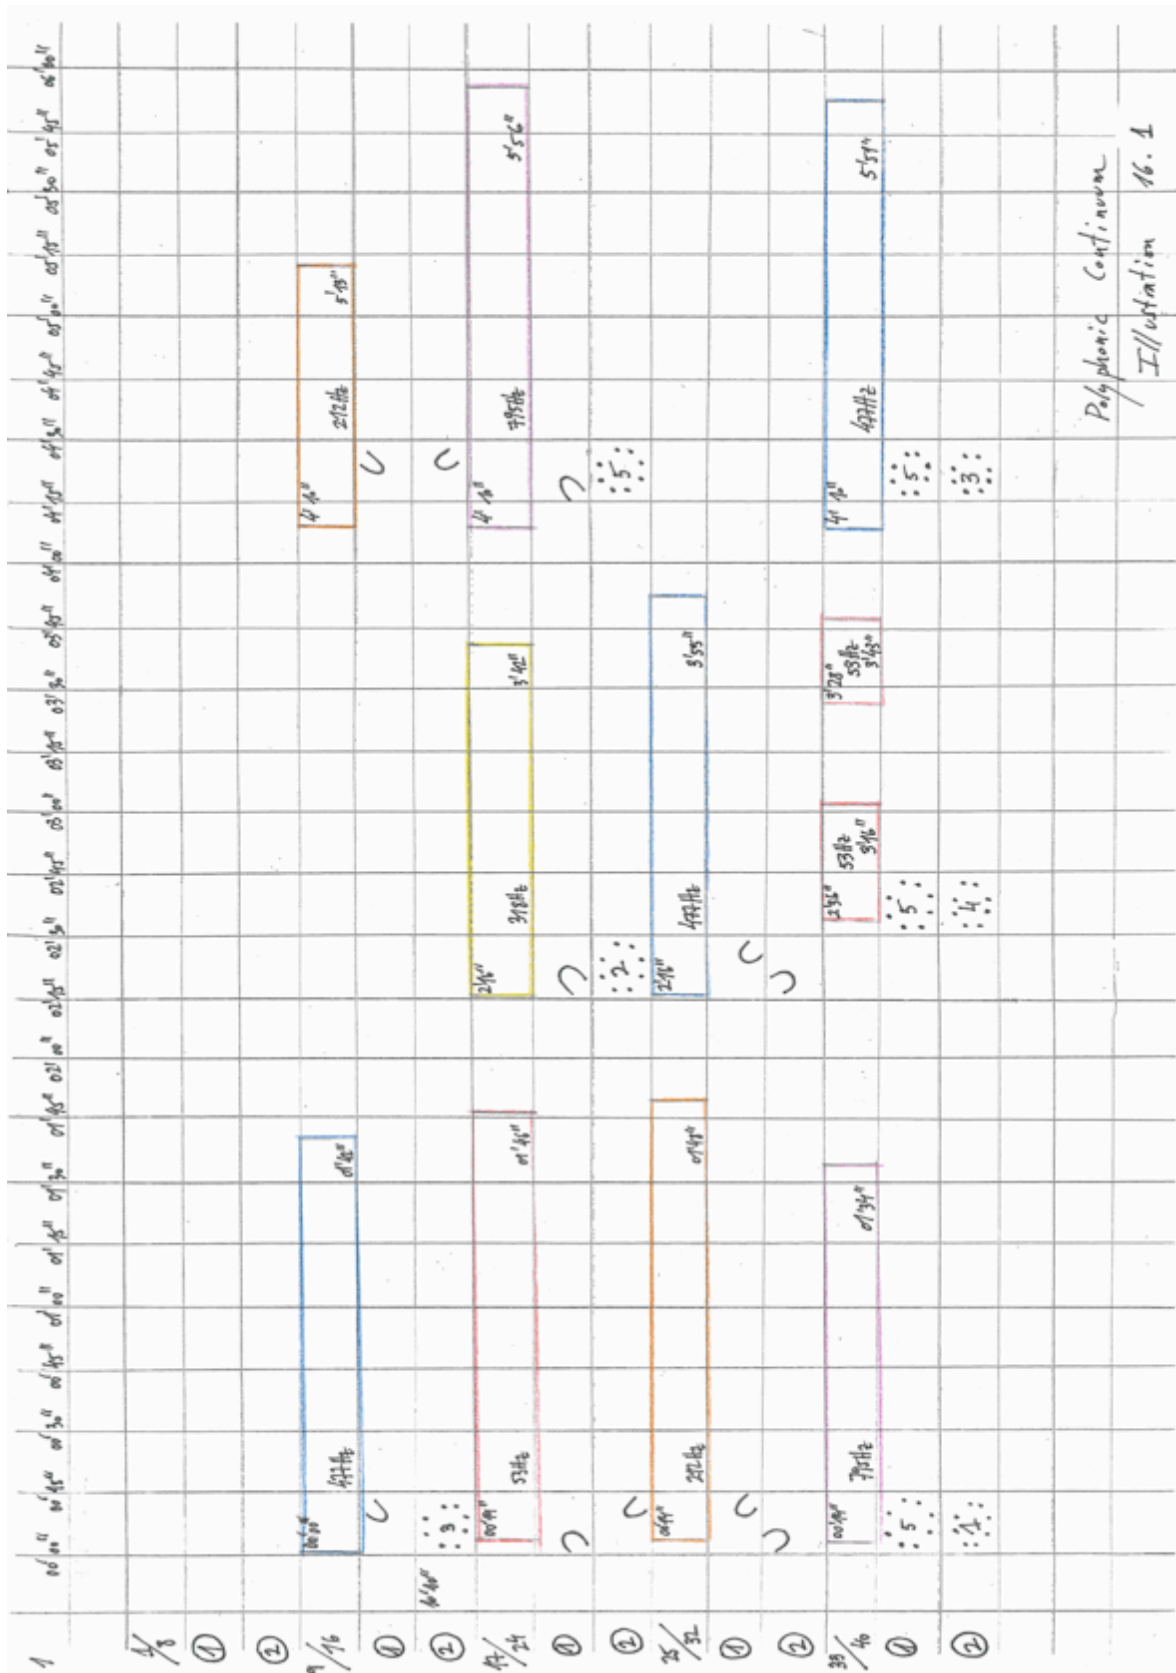 1 00'00" 00'15" 00'30" 00'45" 01'00" 01'15" 01'30" 01'45" 02'00" 02'15" 02'30" 02'45" 03'00" 03'15" 03'30" 03'45" 04'00" 04'15" 04'30" 04'45" 05'00" 05'15" 05'30" 05'45" 06'00"
1/8
①
②
9/16 00'00" 477Hz 01'42" 4'10" 212Hz 5'13"
①
② 3
17/24 00'11" 53Hz 01'46" 2'16" 318Hz 3'42" 4'10" 795Hz 5'56"
①
② 2 5
25/32 00'11" 212Hz 01'48" 2'16" 477Hz 3'55"
①
②
33/40 00'11" 795Hz 01'34" 2'36" 53Hz 3'16" 3'28" 53Hz 3'43" 4'10" 477Hz 5'51"
① 5 5 5
② 1 4 3
Polyphonic Continuum
Illustration 16.1